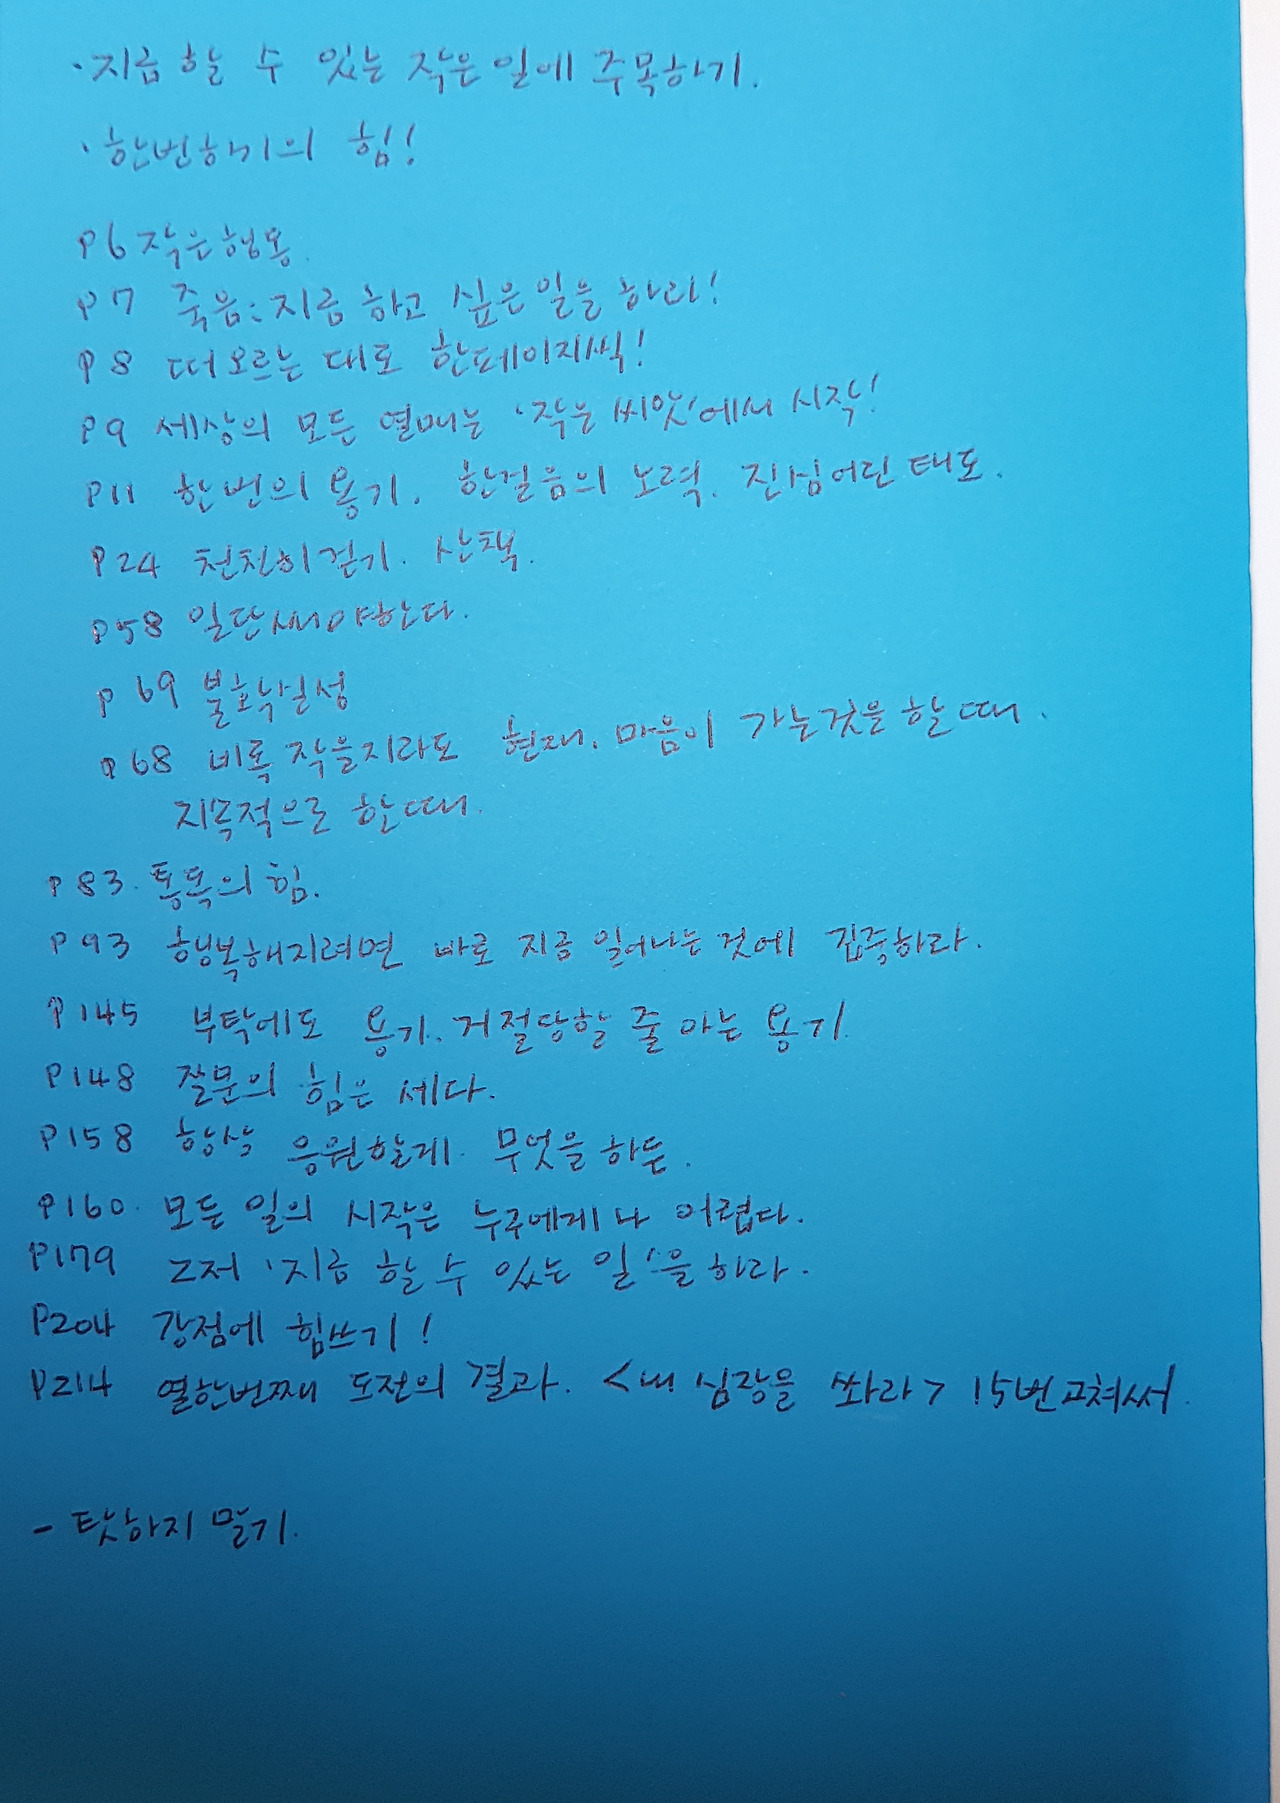 · 지금 할 수 있는 작은 일에 주목하기.
· 한번하기의 힘!
P6 작은행동.
P7 죽음: 지금 하고 싶은 일을 하라!
P8 떠오르는 대로 한페이지씩!
P9 세상의 모든 열매는 '작은 씨앗'에서 시작!
P11 한번의 용기. 한걸음의 노력. 진심어린 태도.
P24 천천히걷기. 산책.
P58 일단써야한다.
P69 불확실성
P68 비록 작을지라도 현재. 마음이 가는것을 할때.
지속적으로 할때.
P83. 통독의 힘.
P93 행복해지려면 바로 지금 일어나는 것에 집중하라.
P145 부탁에도 용기. 거절당할 줄 아는 용기.
P148 질문의 힘은 세다.
P158 항상 응원할게. 무엇을 하든.
P160. 모든 일의 시작은 누구에게나 어렵다.
P179 그저 '지금 할 수 있는 일'을 하라.
P204 강점에 힘쓰기!
P214 열한번째 도전의 결과. <내 심장을 쏴라> 15번고쳐써.
- 탓하지 말기.